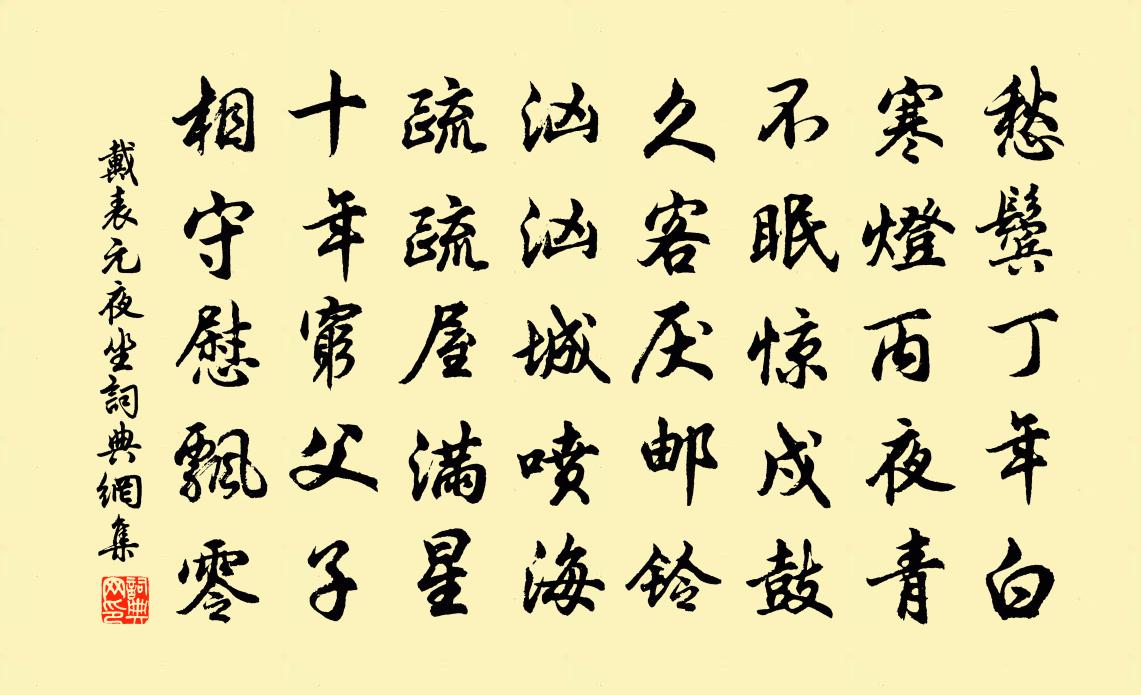 愁鬓丁年白
寒燈丙夜青
不眠惊戍鼓
久客厌邮铃
汹汹城喷海
疏疏屋满星
十年穷父子
相守慰飄零
戴表元夜坐詞典網集
詞典网印